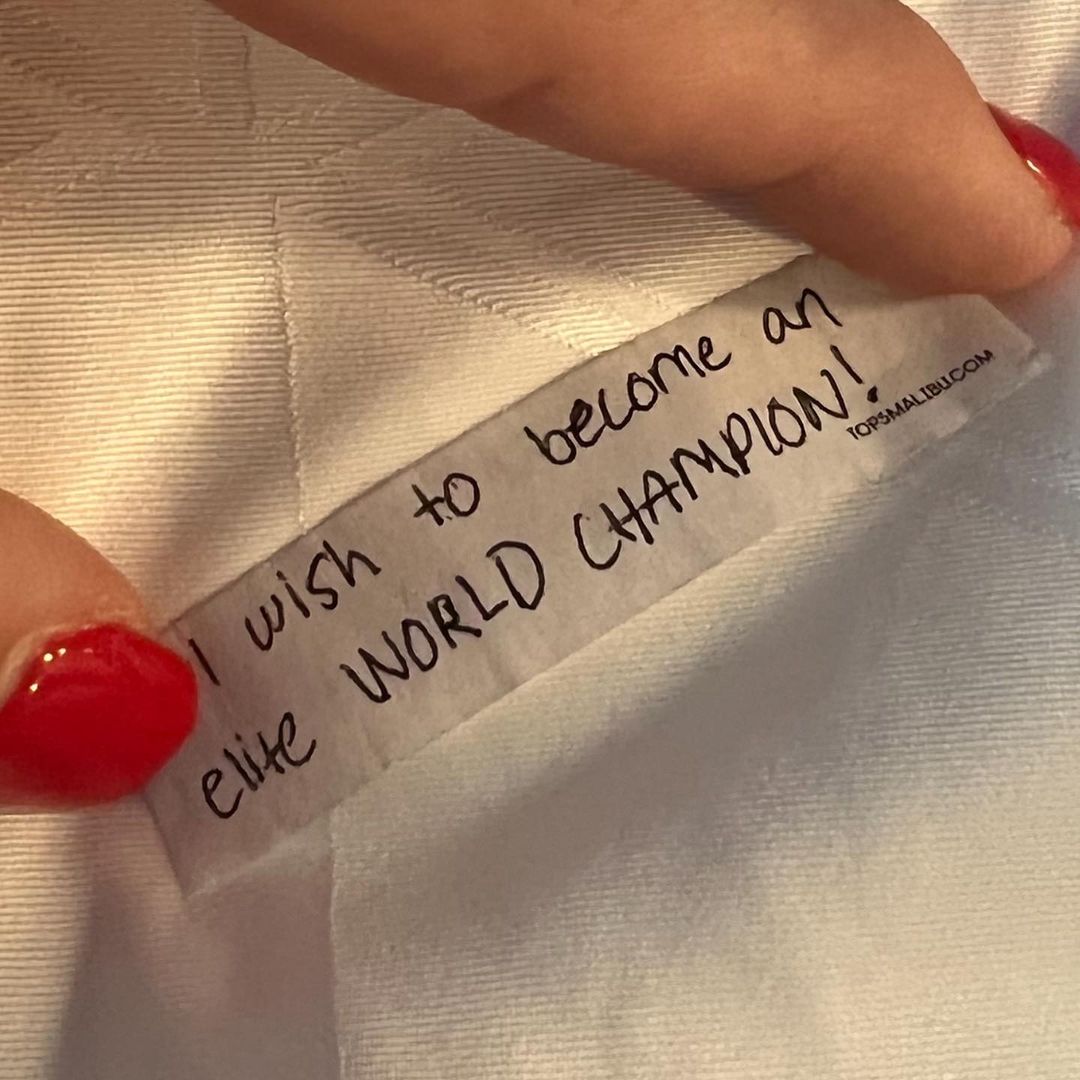 I wish to become an
elite WORLD CHAMPION!
TOPSMALIBU.COM